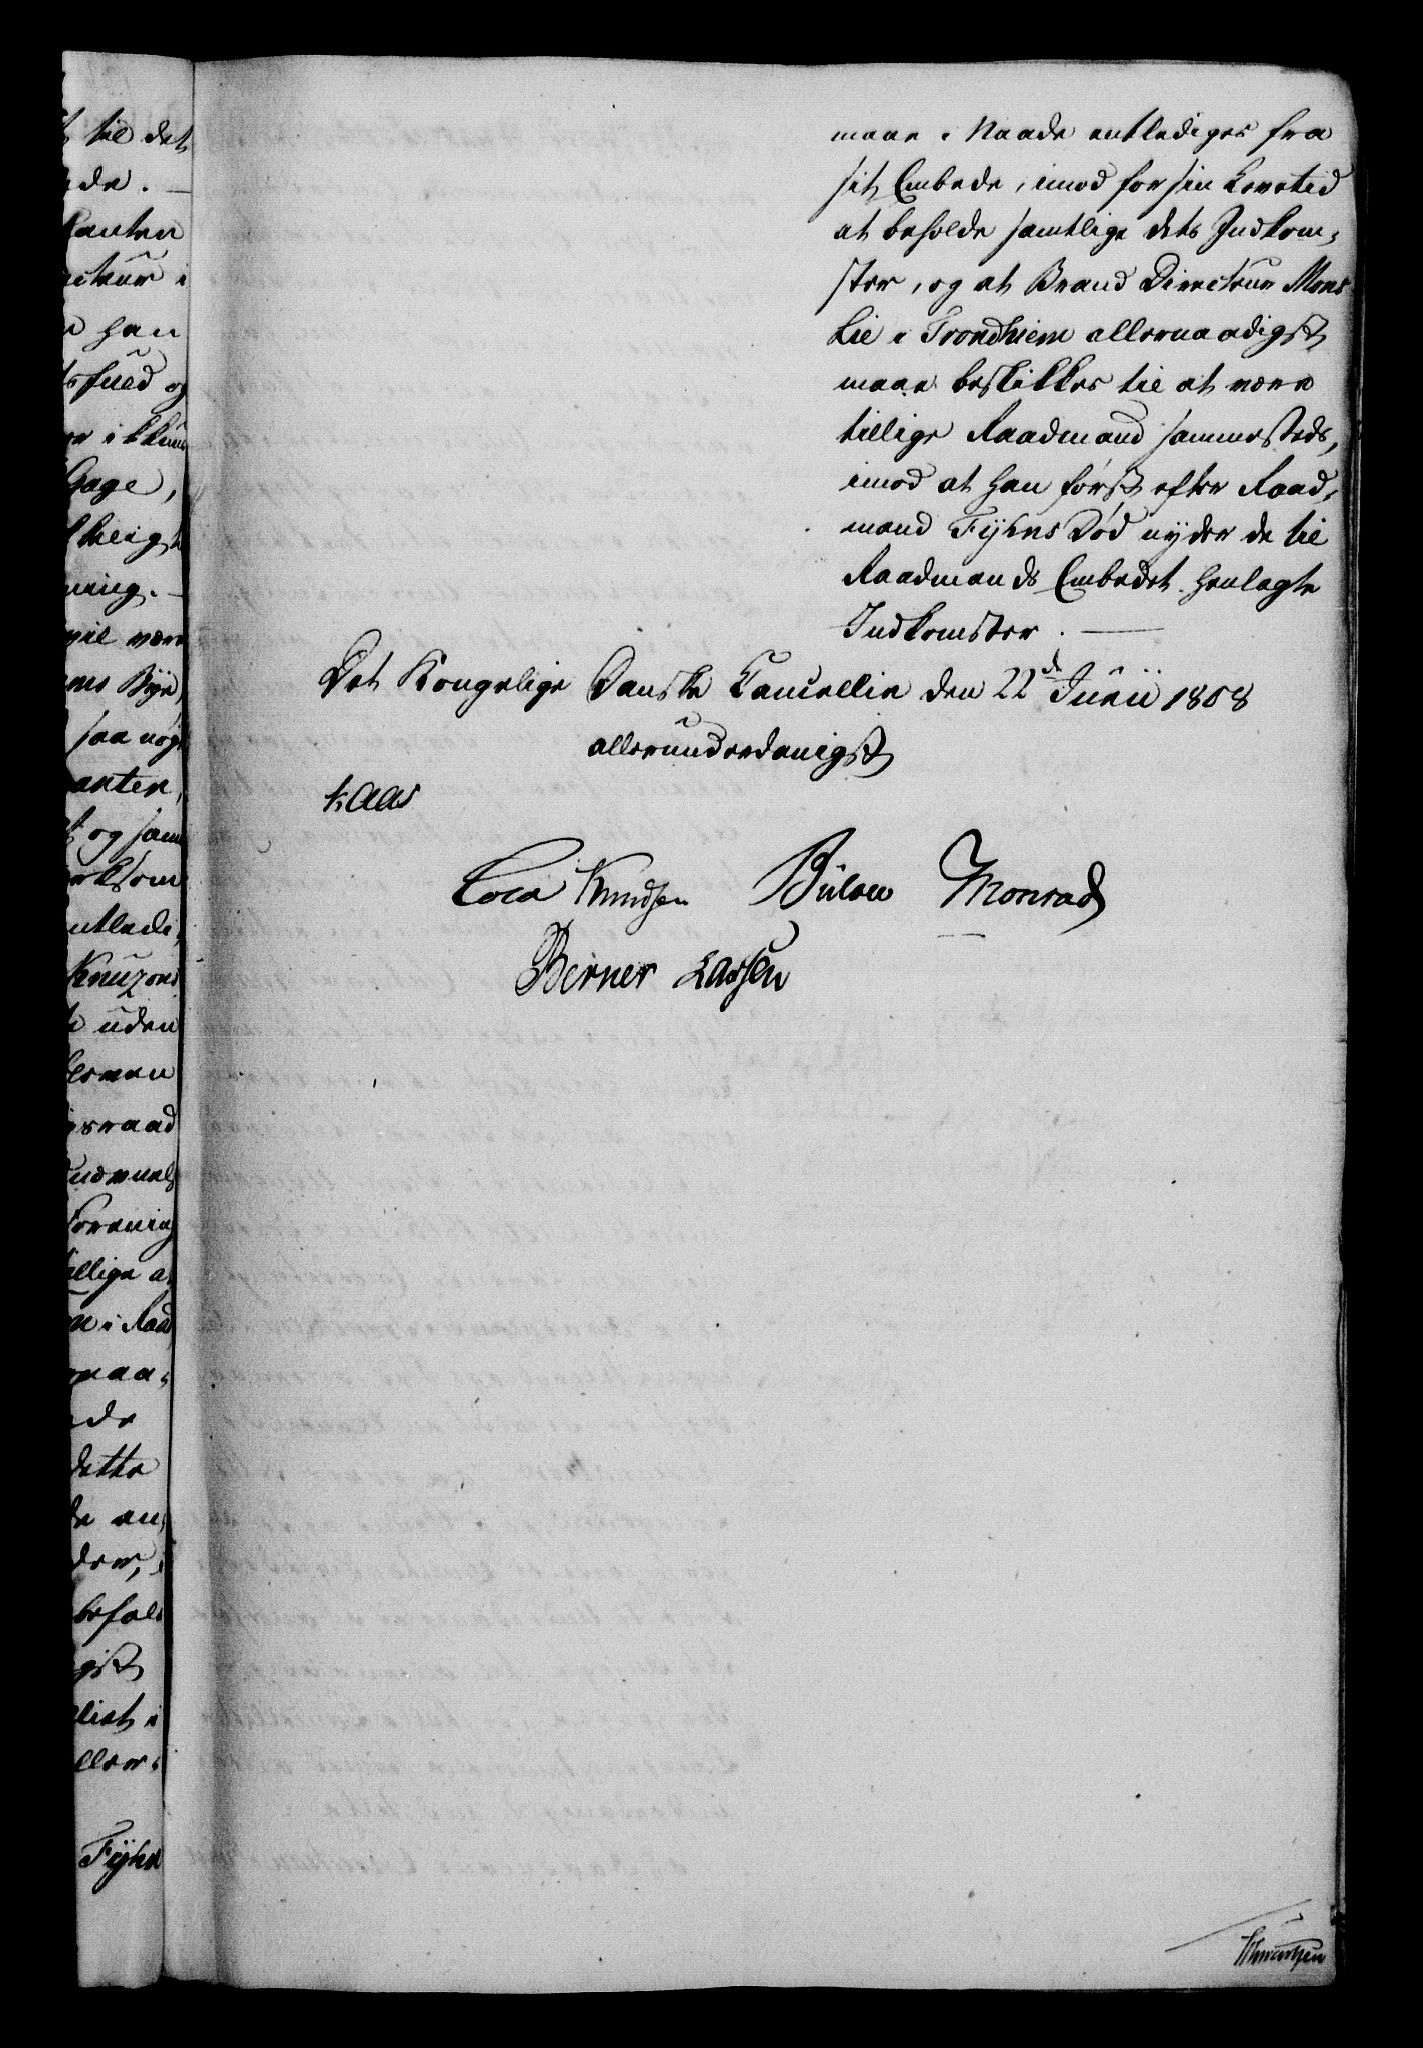 t til det
de.
kanten
cteur i
han
og
Gage,
ning.
vil være
Bye
saa nøg
anten,
og sam
som
ntledi,
Knuzons
uden
raad
Forening
tillige at
i Raad
naa,
de
dette
de an,
der,
behol,
gst
list i
ller,
Fyhn
maae i Naade entlediges fra
sit Embede, imod for sin Levetid
at beholde samtlige dets Indkom,
ster, og at Brand Directeur Mons
Lie i Trondhiem allernaadigst
maae beskikkes til at være
tillige Raadmand sammesteds,
imod at han først efter Raad,
mand Fyhns Død nyder de til
Raadmands Embedet henlagte
Indkomster.
Det Kongelige Danske Cancellie den 22de Junii 1808
allerunderdanigst
Kaas
Cold Knudsen Bülow Monrad
Berner Lassen